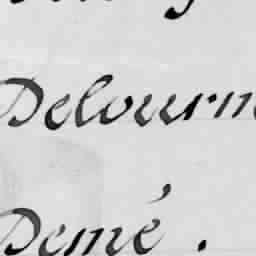 Delourm
Demé.